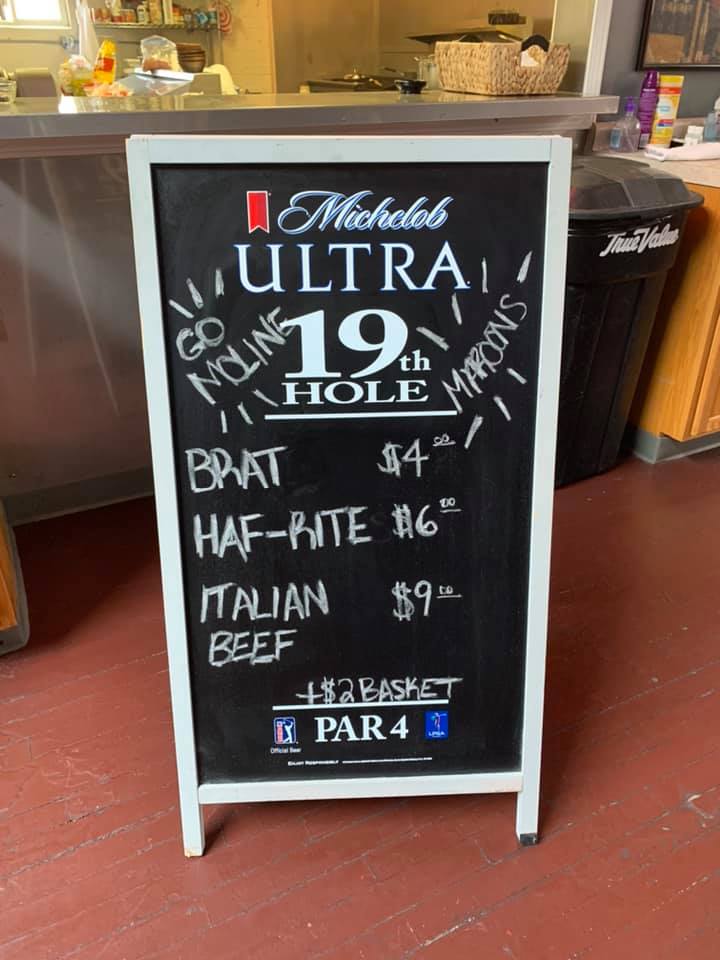 Michelob
ULTRA
GO
MOLINE
19th
HOLE
MAROONS
BRAT $4.00
HAF-RITE $6.00
ITALIAN $9.00
BEEF
+$2 BASKET
PAR 4
Official Beer
LPGA
ENJOY RESPONSIBLY
True Value